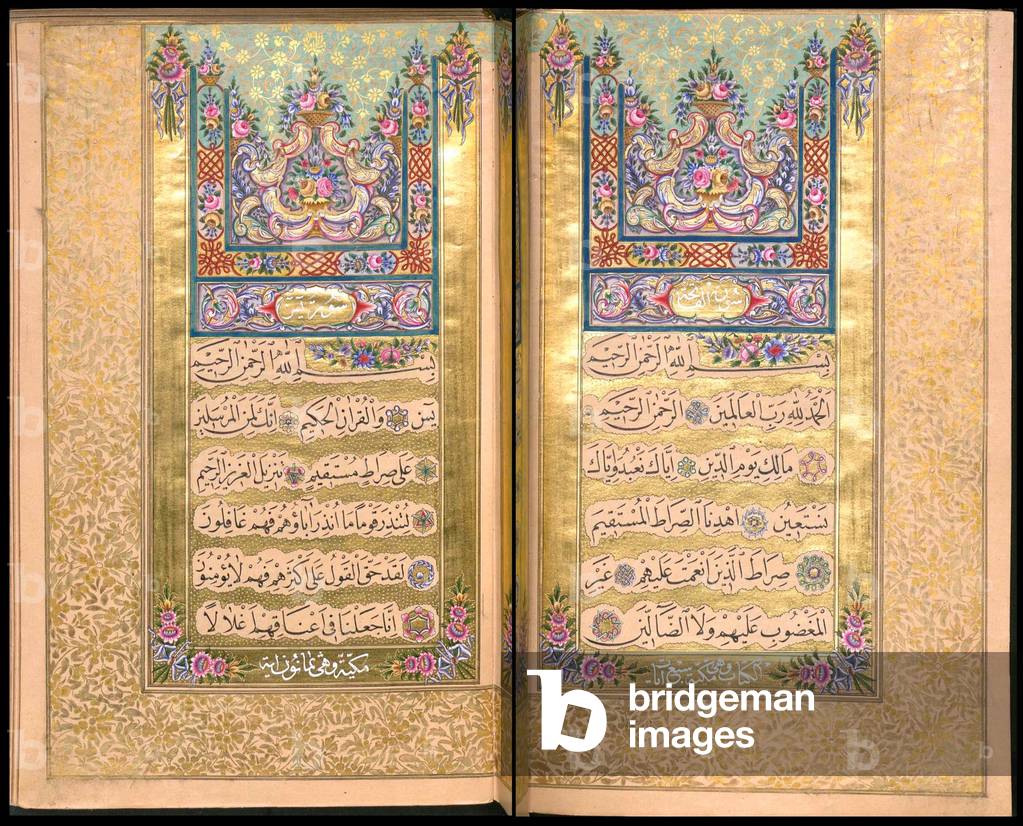 سورة الفاتحة
بسم الله الرحمن الرحيم
الحمد لله رب العالمين الرحمن الرحيم
مالك يوم الدين اياك نعبد واياك
نستعين اهدنا الصراط المستقيم
صراط الذين انعمت عليهم غير
المغضوب عليهم ولا الضالين
الكتاب وهى مكية سبع آيات
سورة يس
بسم الله الرحمن الرحيم
يس والقران الحكيم انك لمن المرسلين
على صراط مستقيم تنزيل العزيز الرحيم
لتنذر قوما ما انذر اباؤهم فهم غافلون
لقد حق القول على اكثرهم فهم لا يؤمنون
انا جعلنا فى اعناقهم اغلالا
مكية وهى ثمانون اية
bridgeman
images